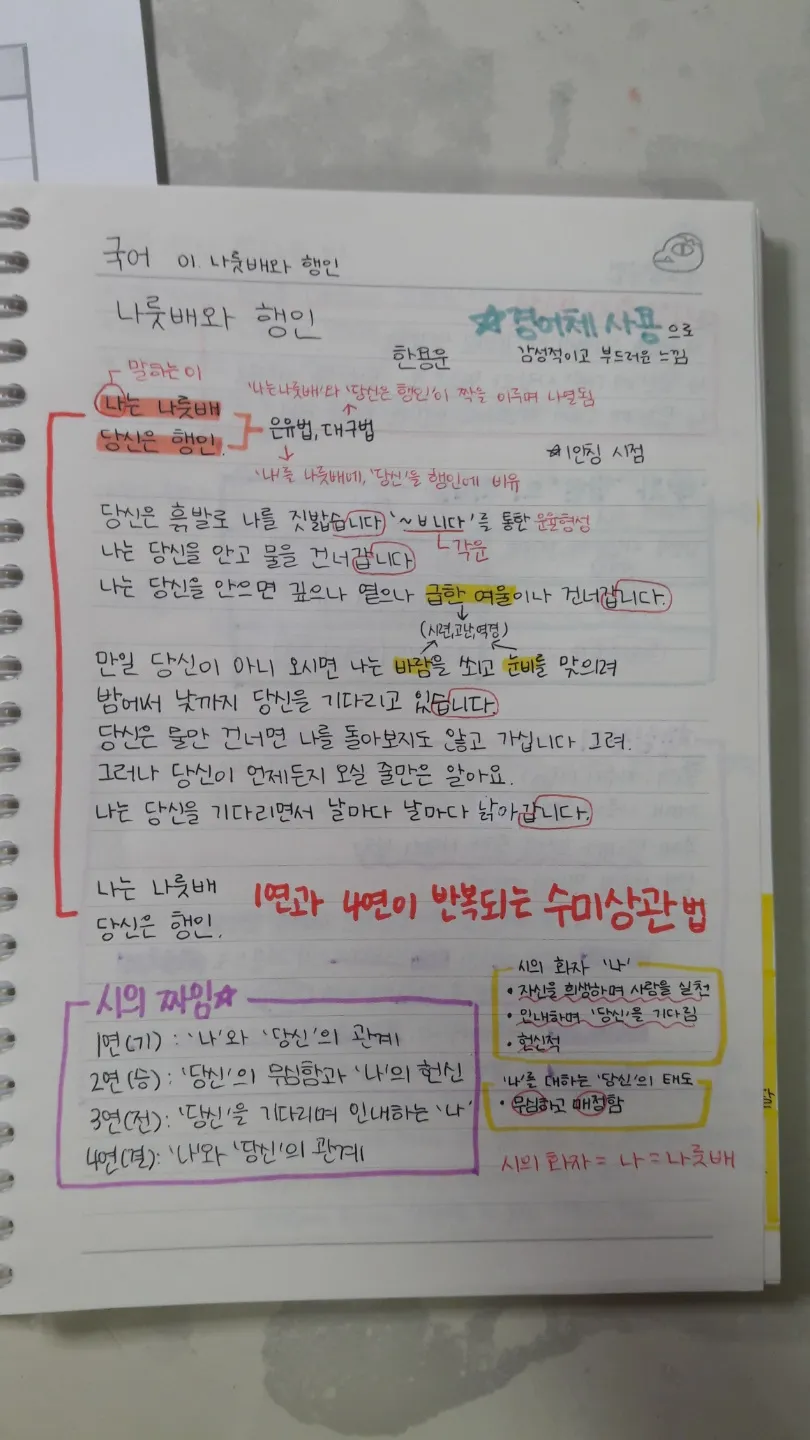 국어 01. 나룻배와 행인
나룻배와 행인
☆경어체 사용으로
한용운
감성적이고 부드러운 느낌
말하는이
'나는나룻배'와 '당신은 행인'이 짝을 이루며 나열됨
나는 나룻배
당신은 행인.
은유법, 대구법
☆1인칭 시점
'나'를 나룻배에, '당신'을 행인에 비유
당신은 흙발로 나를 짓밟습니다 '~ㅂ니다'를 통한 운율형성
나는 당신을 안고 물을 건너갑니다
각운
나는 당신을 안으면 깊으나 옅으나 급한 여울이나 건너갑니다.
(시련,고난,역경)
만일 당신이 아니 오시면 나는 바람을 쐬고 눈비를 맞으려
밤에서 낮까지 당신을 기다리고 있습니다.
당신은 물만 건너면 나를 돌아보지도 않고 가십니다 그려.
그러나 당신이 언제든지 오실 줄만은 알아요.
나는 당신을 기다리면서 날마다 날마다 낡아갑니다.
나는 나룻배
당신은 행인.
1연과 4연이 반복되는 수미상관법
시의 짜임☆
1연(기) : '나'와 '당신'의 관계
2연(승) : '당신'의 무심함과 '나'의 헌신
3연(전) : '당신'을 기다리며 인내하는 '나'
4연(결) : '나'와 '당신'의 관계
시의 화자 '나'
• 자신을 희생하며 사랑을 실천
• 인내하며 '당신'을 기다림
• 헌신적
'나'를 대하는 '당신'의 태도
• 무심하고 매정함
시의 화자 = 나 = 나룻배